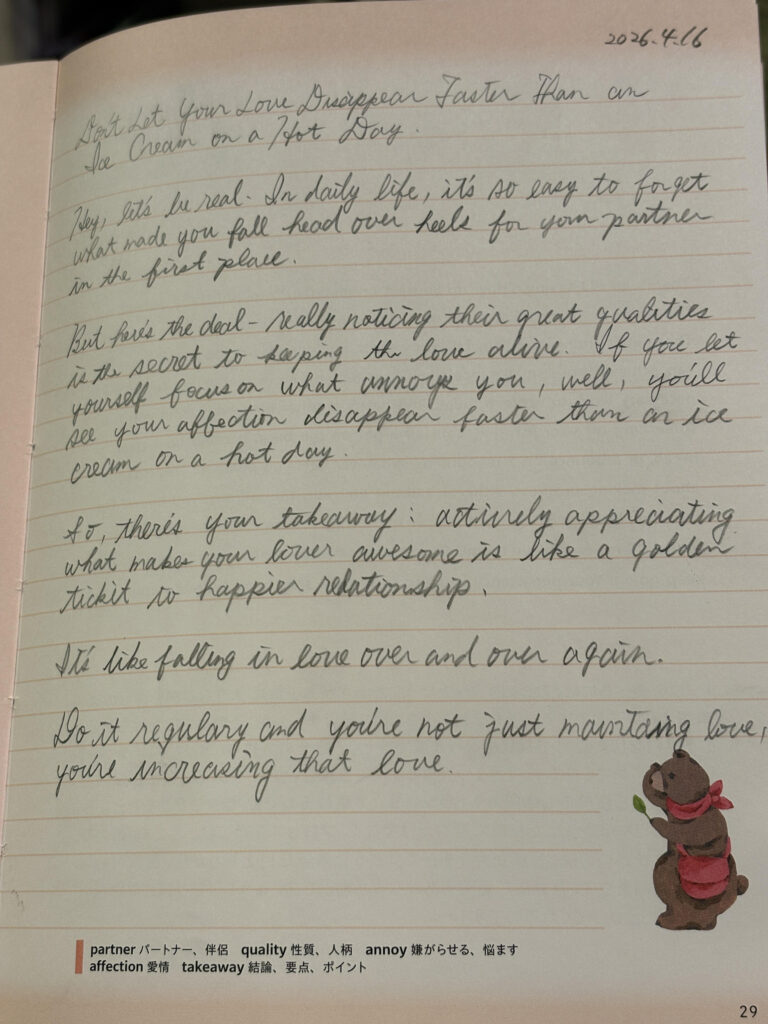 2026.4.16
Don't Let Your Love Disappear Faster Than an
Ice Cream on a Hot Day.
Hey, let's be real. In daily life, it's so easy to forget
what made you fall head over heels for your partner
in the first place.
But here's the deal – really noticing their great qualities
is the secret to keeping the love alive. If you let
yourself focus on what annoys you, well, you'll
see your affection disappear faster than an ice
cream on a hot day.
So, there's your takeaway: actively appreciating
what makes your lover awesome is like a golden
tickit to happier relationship.
It's like falling in love over and over again.
Do it regulary and you're not just maintaing love,
you're increasing that love.
partner パートナー、伴侶 quality 性質、人柄 annoy 嫌がらせる、悩ます
affection 愛情 takeaway 結論、要点、ポイント
29